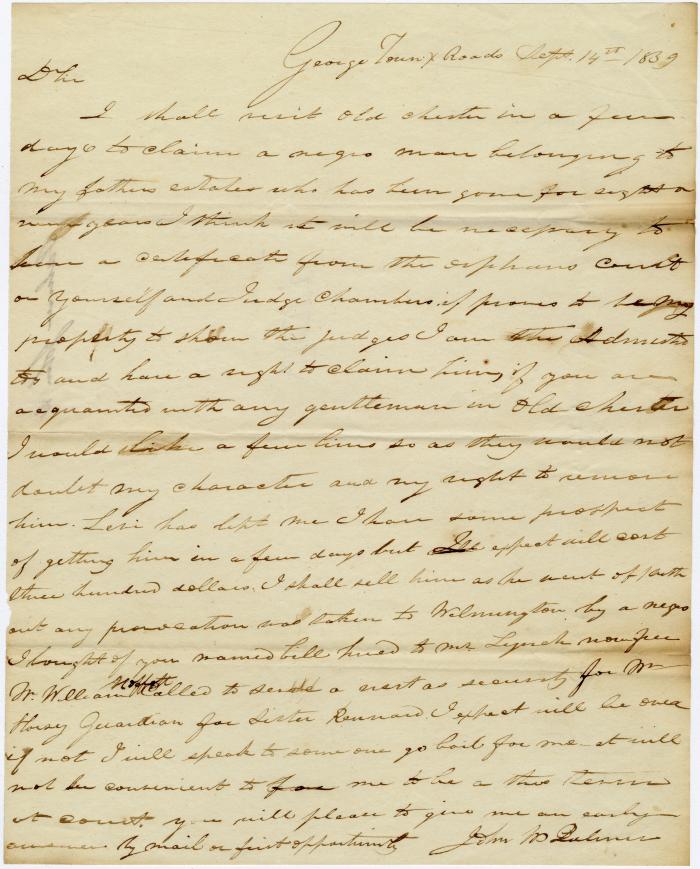 George Town X Roads Sept. 14th 1839
D Sir
I shall visit Old Chester in a few
days to claim a negro man belonging to
my fathers estate who has been gone for eight or
nine years I think it will be necessary to
have a certificate from the orphans court
or yourself and Judge Chambers, if proves to be my
property to show the judges I am the Admistra
tor and have a right to claim him, if you are
acquanted with any gentleman in Old Chester
I would like a few lines so as they would not
doubt my character and my right to remove
him. Levi has left me I have some prospect
of getting him in a few days but expect will cost
three hundred dollars. I shall sell him as he went of with
out any provocation was taken to Wilmington by a negro
I bought of you named bill hired to mr Lynch now free
Mr. William called to serve a writ as security for Wm
Horsey Guardian for Sister Rennard. I expect will be over
if not I will speak to some one go bail for me it will
not be convenient to for me to be a this term
at court. you will please to give me an early
answer by mail or first opportunity John W